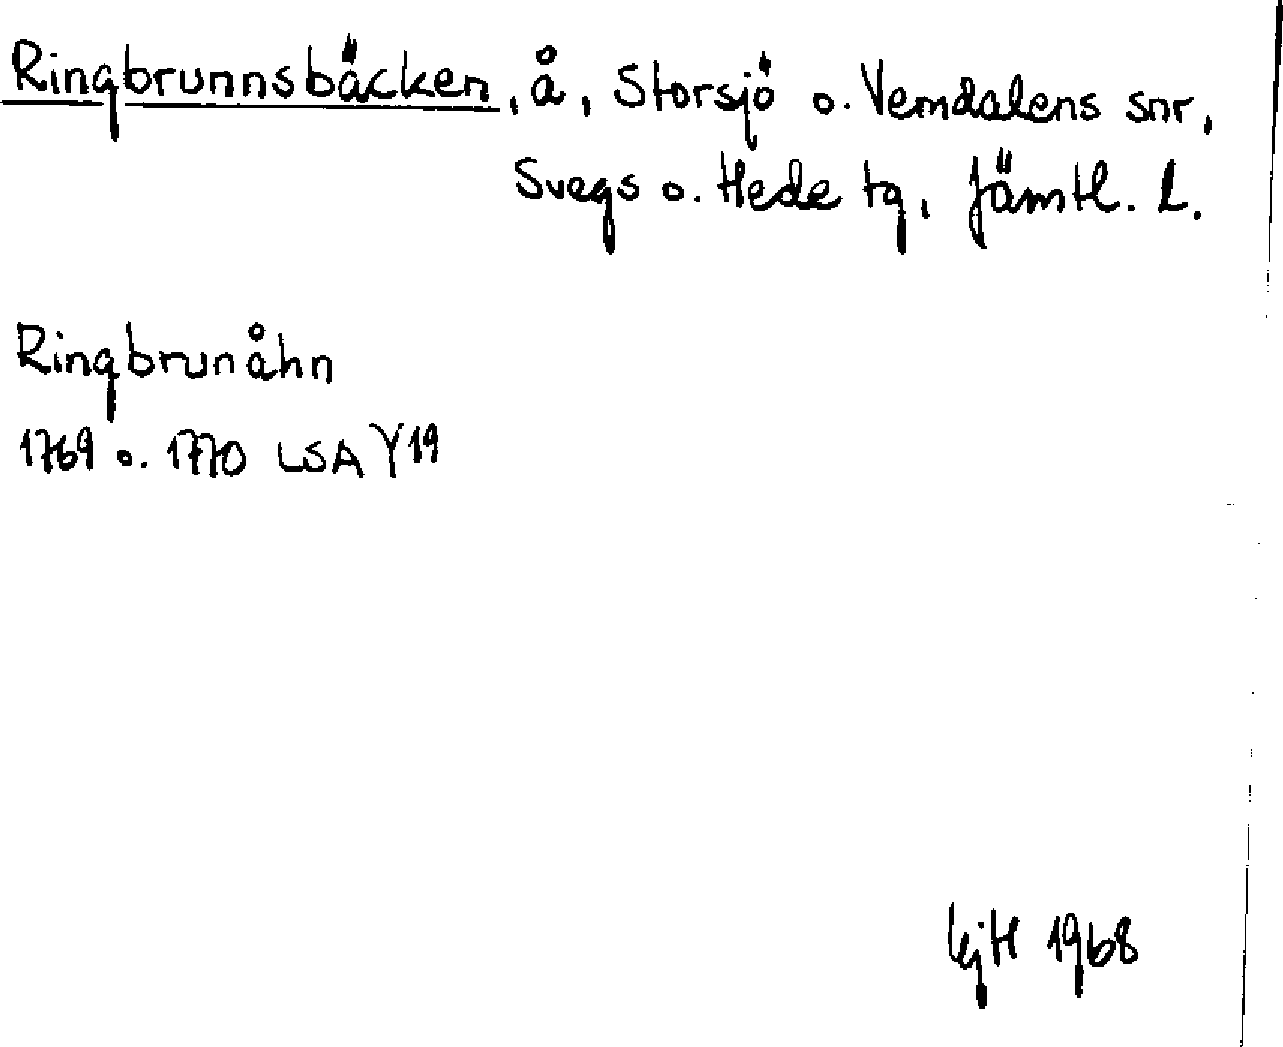 Ringbrunnsbäcken, å, Storsjö o. Vemdalens snr,
Svegs o. Hede tg, Jämtl. L.
Ringbrunåhn
1769 o. 1770 LSA Y19
1968